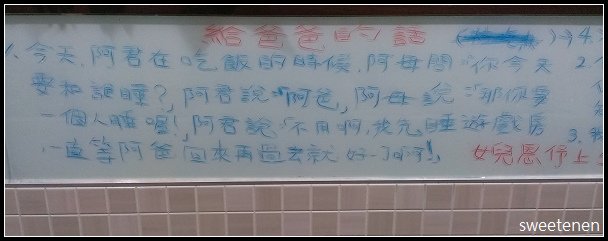 給爸爸的話 → 4.
1. 今天,阿君在吃飯的時候,阿母問「你今天 2.
要和誰睡?」阿君說「阿爸」,阿母說:「那你要
一個人睡喔!」阿君說「不用啊,我先睡遊戲房
一直等阿爸回來再過去就好了啊!」 女兒恩伃上
3.
sweetenen